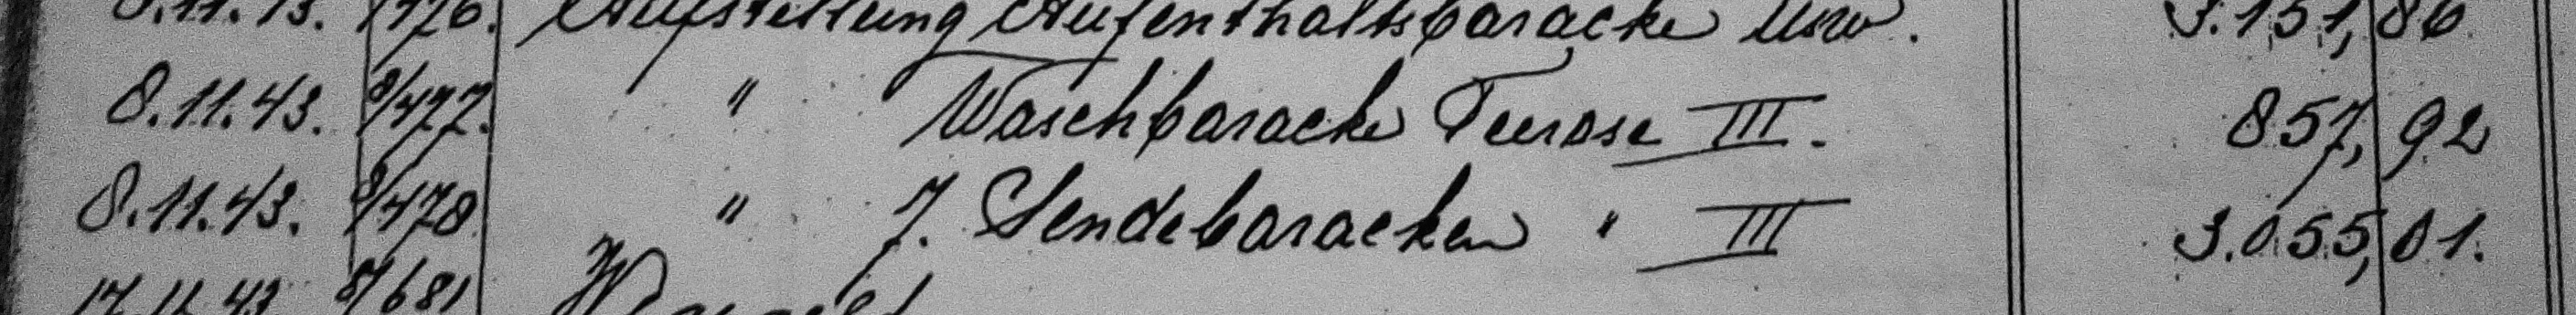 8.11.43. 8/476. Aufstellung Aufenthaltsbaracke usw. 3.151,86
8.11.43. 8/477. " Waschbaracke III. 857,92
8.11.43. 8/478 " 7. Sendebaracken " III 3.055,01.
17.11.43 8/681